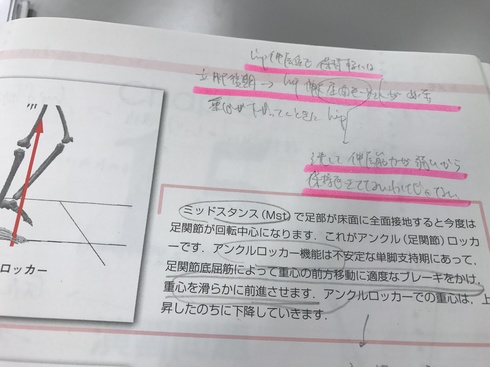 hip 伸展位で保持するには
立脚後期→hip
hip
決して伸展筋力が弱いから
保持できてないわけじゃない
ミッドスタンス(Mst)で足部が床面に全面接地すると今度は
足関節が回転中心になります．これがアンクル(足関節)ロッカ
ーです．アンクルロッカー機能は不安定な単脚支持期にあって，
足関節底屈筋によって重心の前方移動に適度なブレーキをかけ，
重心を滑らかに前進させます．アンクルロッカーでの重心は，上
昇したのちに下降していきます．
ロッカー